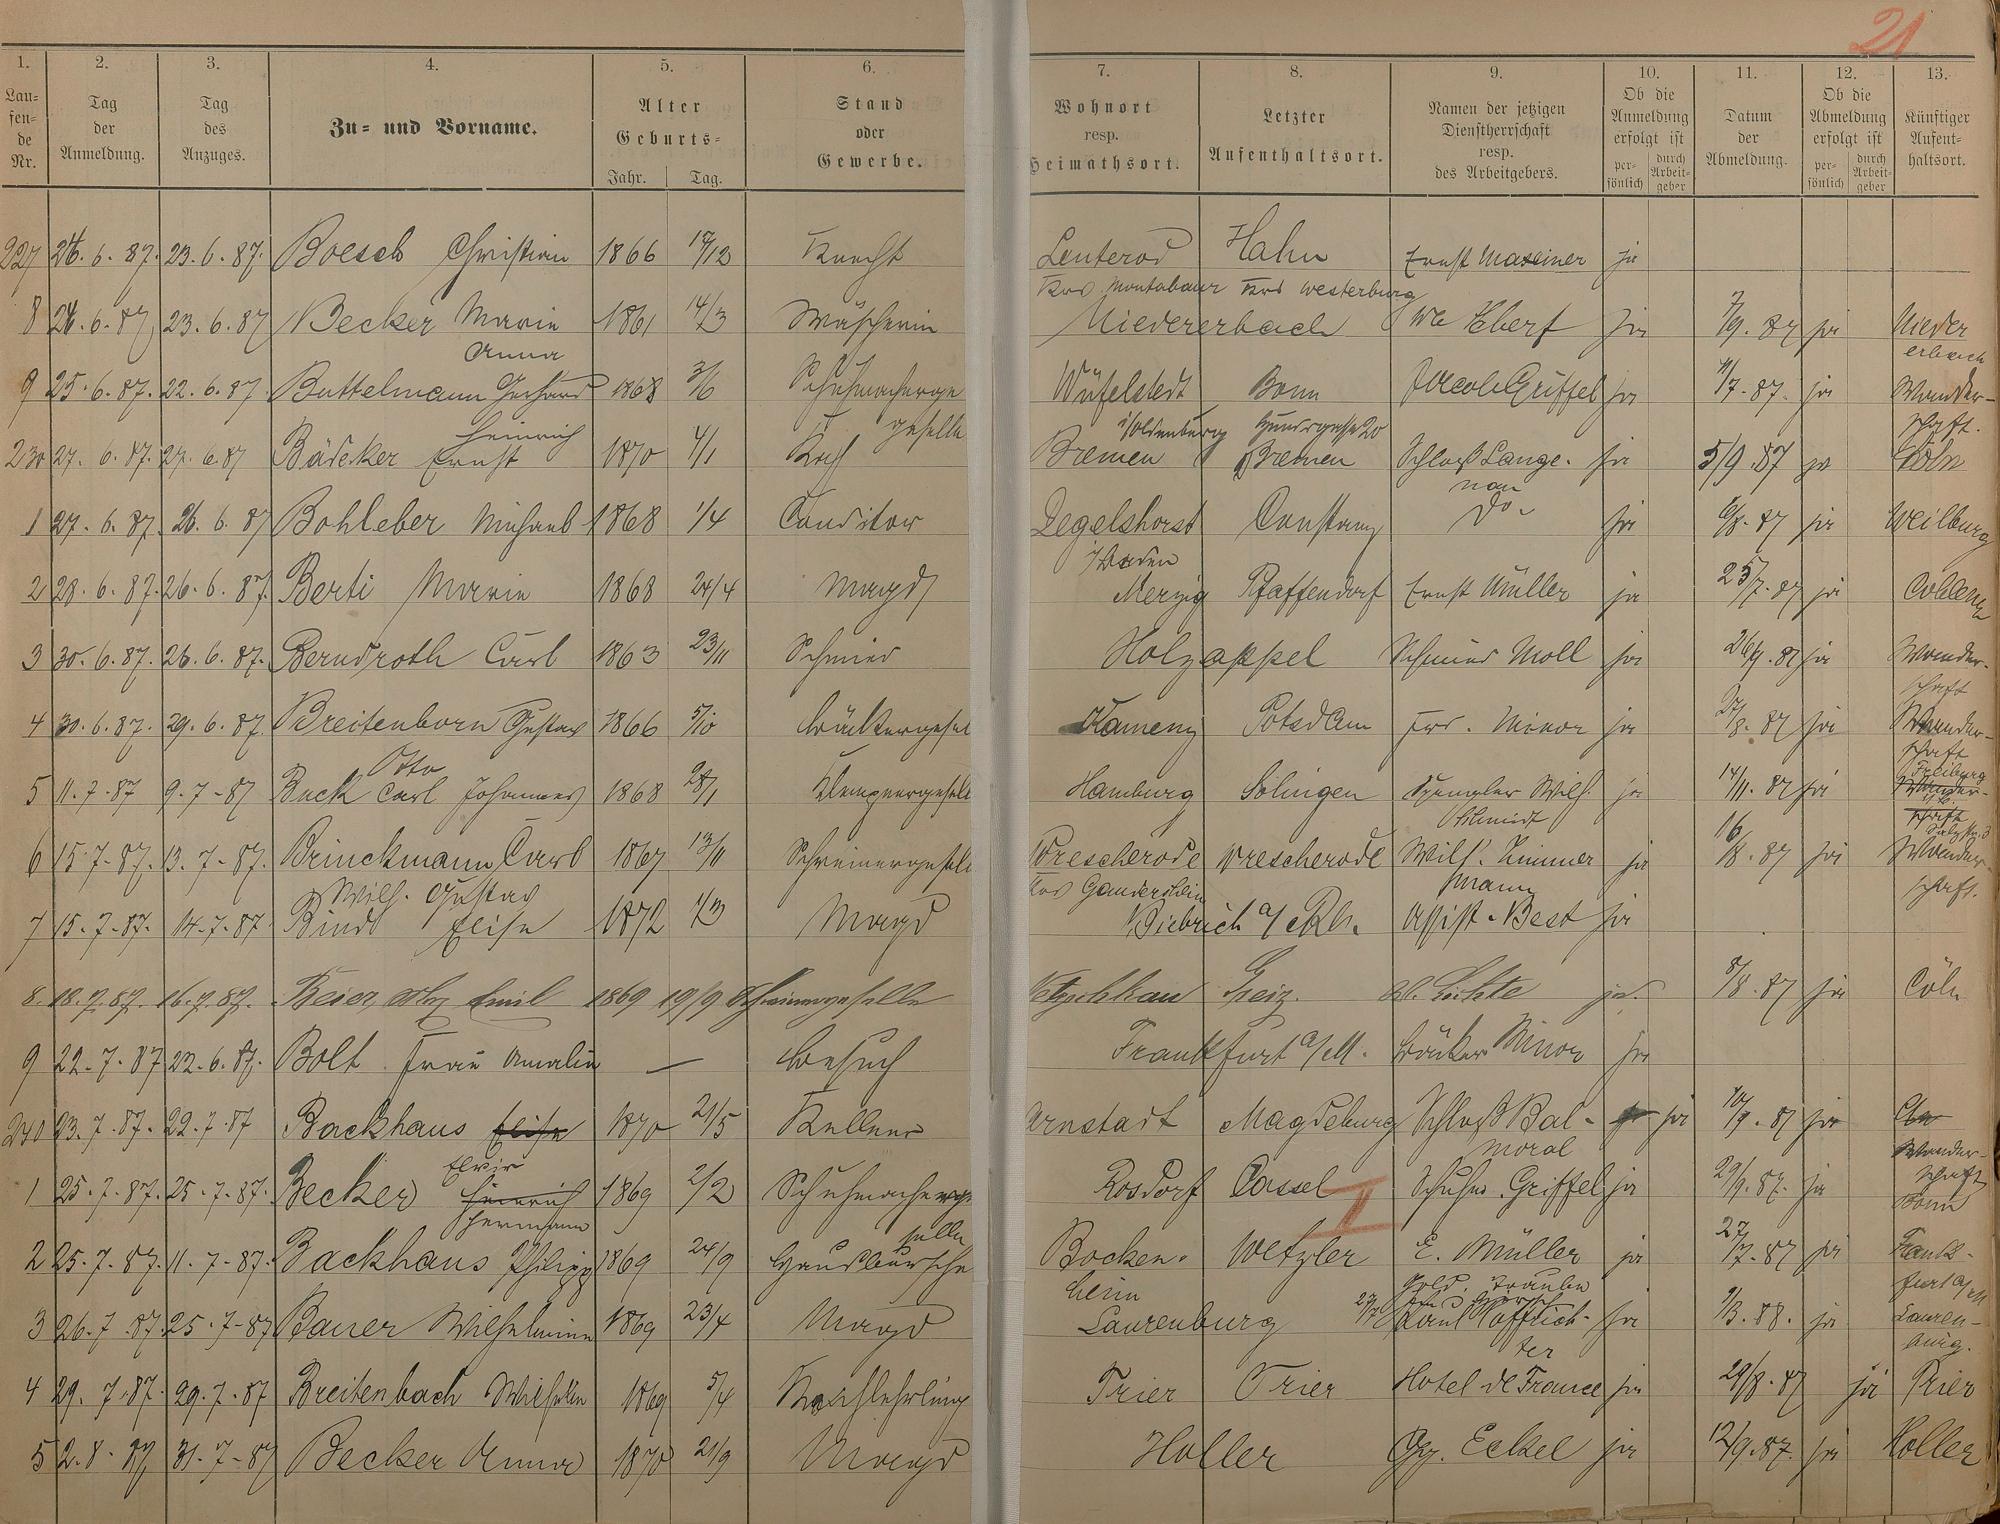 21
1. 2. 3. 4. 5. 6. 7. 8. 9. 10. 11. 12. 13.
Lau-
fen-
de
Nr.
Tag
der
Anmeldung.
Tag
des
Anzuges.
Zu- und Vorname.
Alter
Geburts-
Jahr. Tag.
Stand
oder
Gewerbe.
Wohnort
resp.
Heimathsort.
Letzter
Aufenthaltsort.
Namen der jetzigen
Dienstherrschaft
resp.
des Arbeitgebers.
Ob die
Anmeldung
erfolgt ist
per-
sönlich
durch
Arbeit-
geber
Datum
der
Abmeldung.
Ob die
Abmeldung
erfolgt ist
per-
sönlich
durch
Arbeit-
geber
Künftiger
Aufent-
haltsort.
227 24.6.87. 23.6.87. Boesch Christian 1866 Knecht Lenterod Hahn Ernst Maxeiner ja
Krs Montabaur Krs Westerburg
8 24.6.87 23.6.87 Becker Maria 1861 14/3 Wäscherin Niedererbach We Ebert ja 7/9.87 ja Nieder
Anna erbach
9 25.6.87. 22.6.87. Buttelmann Gerhard 1868 3/6 Schuhmacherge Wüfelstedt Bonn Jacob Griffel ja 11/7.87. ja Wander-
Heinrich geselle i/Oldenburg 20 schaft.
230 27.6.87. 27.6.87 Bädeker Ernst 1870 4/1 Koch Bremen Bremen Schloß Lange- ja 5/9.87 ja Cöln
nau
1 27.6.87. 26.6.87 Bohleber Michael 1868 1/4 Conditor Legelshorst Constanz do. ja 6/8.87 ja Weilburg
i/Baden
2 28.6.87. 26.6.87. Berti Maria 1868 24/4 Magd Merzig Pfaffendorf Ernst Müller ja 25/7.87 ja Coblenz
3 30.6.87. 26.6.87. Berndroth Carl 1863 23/11 Schmied Holzappel Schmied Moll ja 26/9.87 ja Wander-
schaft
4 30.6.87. 29.6.87. Breitenborn Gustav 1866 5/10 Bäckergesel Kamenz Potsdam Frd. Minor ja 27/8.87 ja Wander-
Otto schaft
5 11.7.87 9.7.87 Beck Carl Johannes 1868 28/1 Klempnergesell Hamburg Solingen Spengler Wilh. ja 14/11.87 ja Freiburg
Schmidt Wander-
schaft
6 15.7.87. 13.7.87. Brinckmann Carl 1867 13/11 Schreinergesell Wrescherode Wrescherode Wilh. Zimmer ja 16/8.87 ja Wander
Wilh. Gustav Krs Gandersheim mann schaft.
7 15.7.87. 14.7.87 Bindl Elise 1872 1/3 Magd Biebrich a/Rh. Assist. Best ja
8. 18.7.87. 16.7.87. Beier Emil 1869 19/9 Netzschkau Greiz. ja. 8/8.87 ja Cöln
9 22.7.87 22.6.87. Bolt Frau Amalie — Besuch Frankfurt a/M. Bäcker Minor ja
240 23.7.87. 22.7.87 Backhaus Elise 1870 21/5 Kellner Arnstadt Magdeburg Schloß Bal- ja 10/9.87 ja
Elvir moral Wander-
schaft
1 25.7.87. 25.7.87. Becker Heinrich 1869 2/2 Schuhmacherge Rosdorf Cassel II Schuhm. Griffel ja 29/9.87. ja Bonn
Hermann selle
2 25.7.87. 11.7.87. Backhaus Philipp 1869 24/9 Hausbursche Bocken- Wetzler E. Müller ja 27/7.87 ja Frank-
heim Gold. Traube furt a/M
3 26.7.87. 25.7.87 Bauer Wilhelmine 1869 23/4 Magd Laurenburg 27/7 ja 1/3.88. ja Lauren-
ter burg.
4 29.7.87. 29.7.87 Breitenbach Wilhelm 1869 5/4 Kochlehrling Trier Trier Hotel de France ja 29/8.87 ja Trier
5 2.8.87 31.7.87 Becker Anna 1870 21/9 Magd Holler Gg. Eckel ja 12/9.87. ja Holler